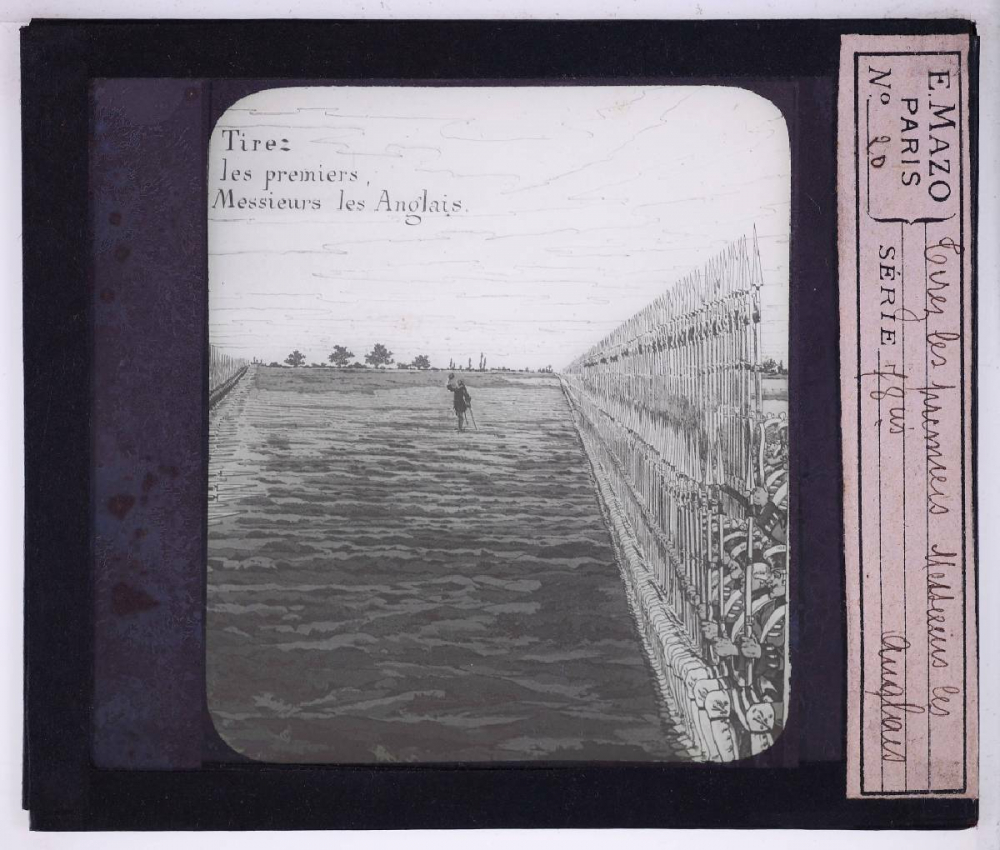 Tirez
les premiers,
Messieurs les Anglais.
E. MAZO
PARIS
No 20
SÉRIE 78 bis
Tirez les premiers Messieurs les
Anglais